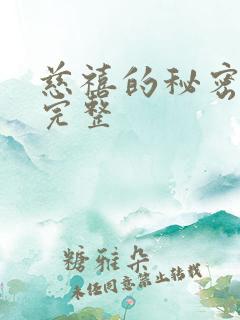 慈禧的秘密
完整
糖雅朵
未经同意禁止转载